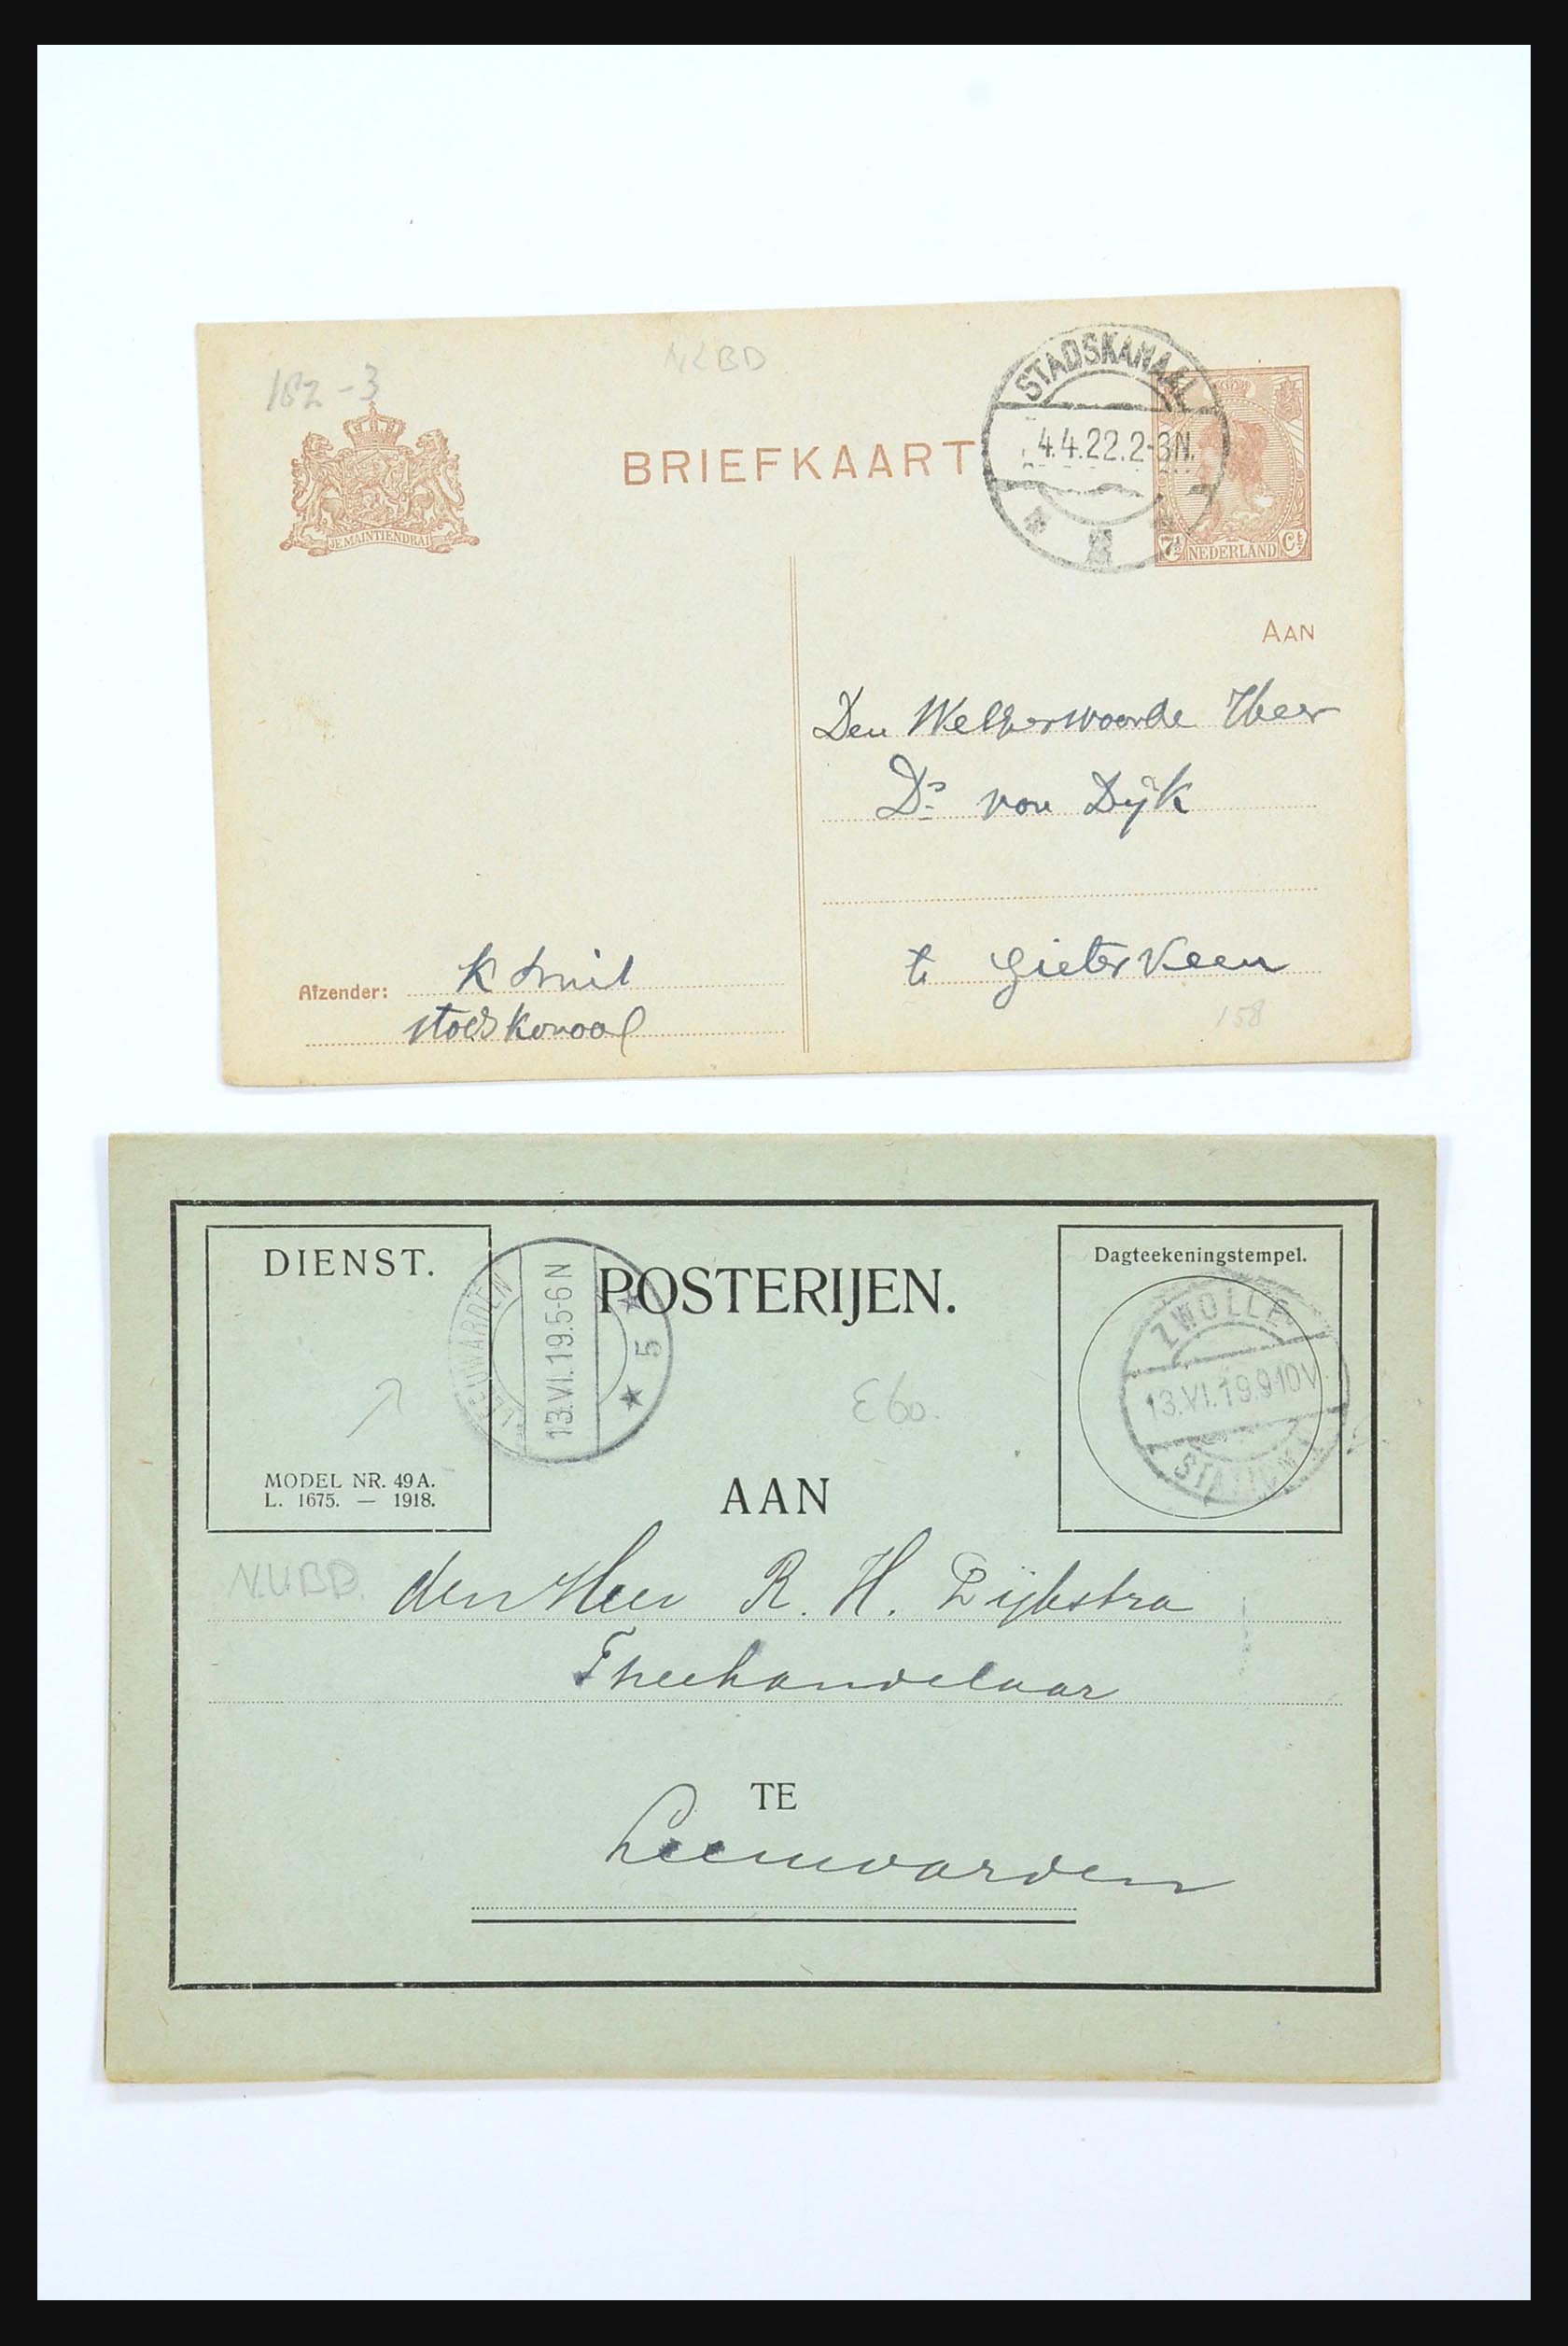 182-3
NLBD
JE MAINTIENDRAI
BRIEFKAART
STADSKANAAL
4.4.22.2-3N.
7½ NEDERLAND Ct
AAN
Den Weleerwaarde Heer
Ds van Dijk
te Gieterveen
158
Afzender: K Smit
Stadskanaal
DIENST.
MODEL NR. 49A.
L. 1675. — 1918.
LEEUWARDEN
13.VI.19.5-6N
5
POSTERIJEN.
Dagteekeningstempel.
ZWOLLE
13.VI.19.9-10V
STATION
E60.
AAN
N.U.B.D.
den Heer R. H. Dijkstra
Theehandelaar
TE
Leeuwarden